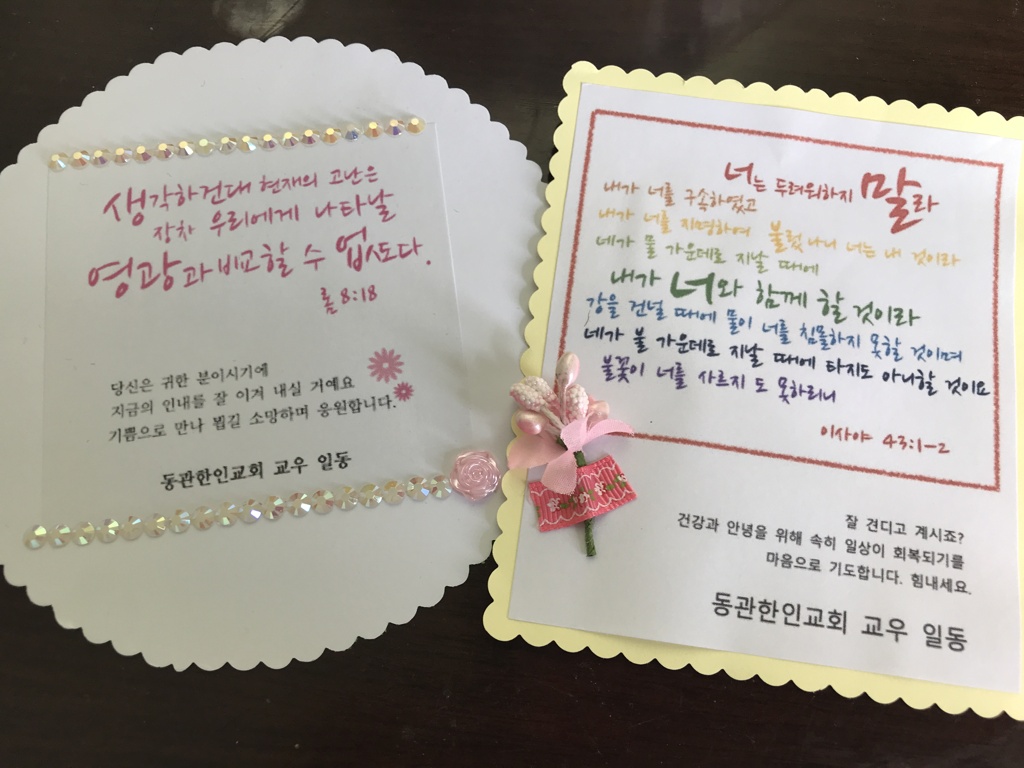 생각하건대 현재의 고난은
장차 우리에게 나타날
영광과 비교할 수 없도다.
롬 8:18
당신은 귀한 분이시기에
지금의 인내를 잘 이겨 내실 거예요
기쁨으로 만나 뵙길 소망하며 응원합니다.
동관한인교회 교우 일동
너는 두려워하지 말라
내가 너를 구속하였고
내가 너를 지명하여 불렀나니 너는 내 것이라
네가 물 가운데로 지날 때에
내가 너와 함께 할 것이라
강을 건널 때에 물이 너를 침몰하지 못할 것이며
네가 불 가운데로 지날 때에 타지도 아니할 것이요
불꽃이 너를 사르지도 못하리니
이사야 43:1-2
잘 견디고 계시죠?
건강과 안녕을 위해 속히 일상이 회복되기를
마음으로 기도합니다. 힘내세요.
동관한인교회 교우 일동